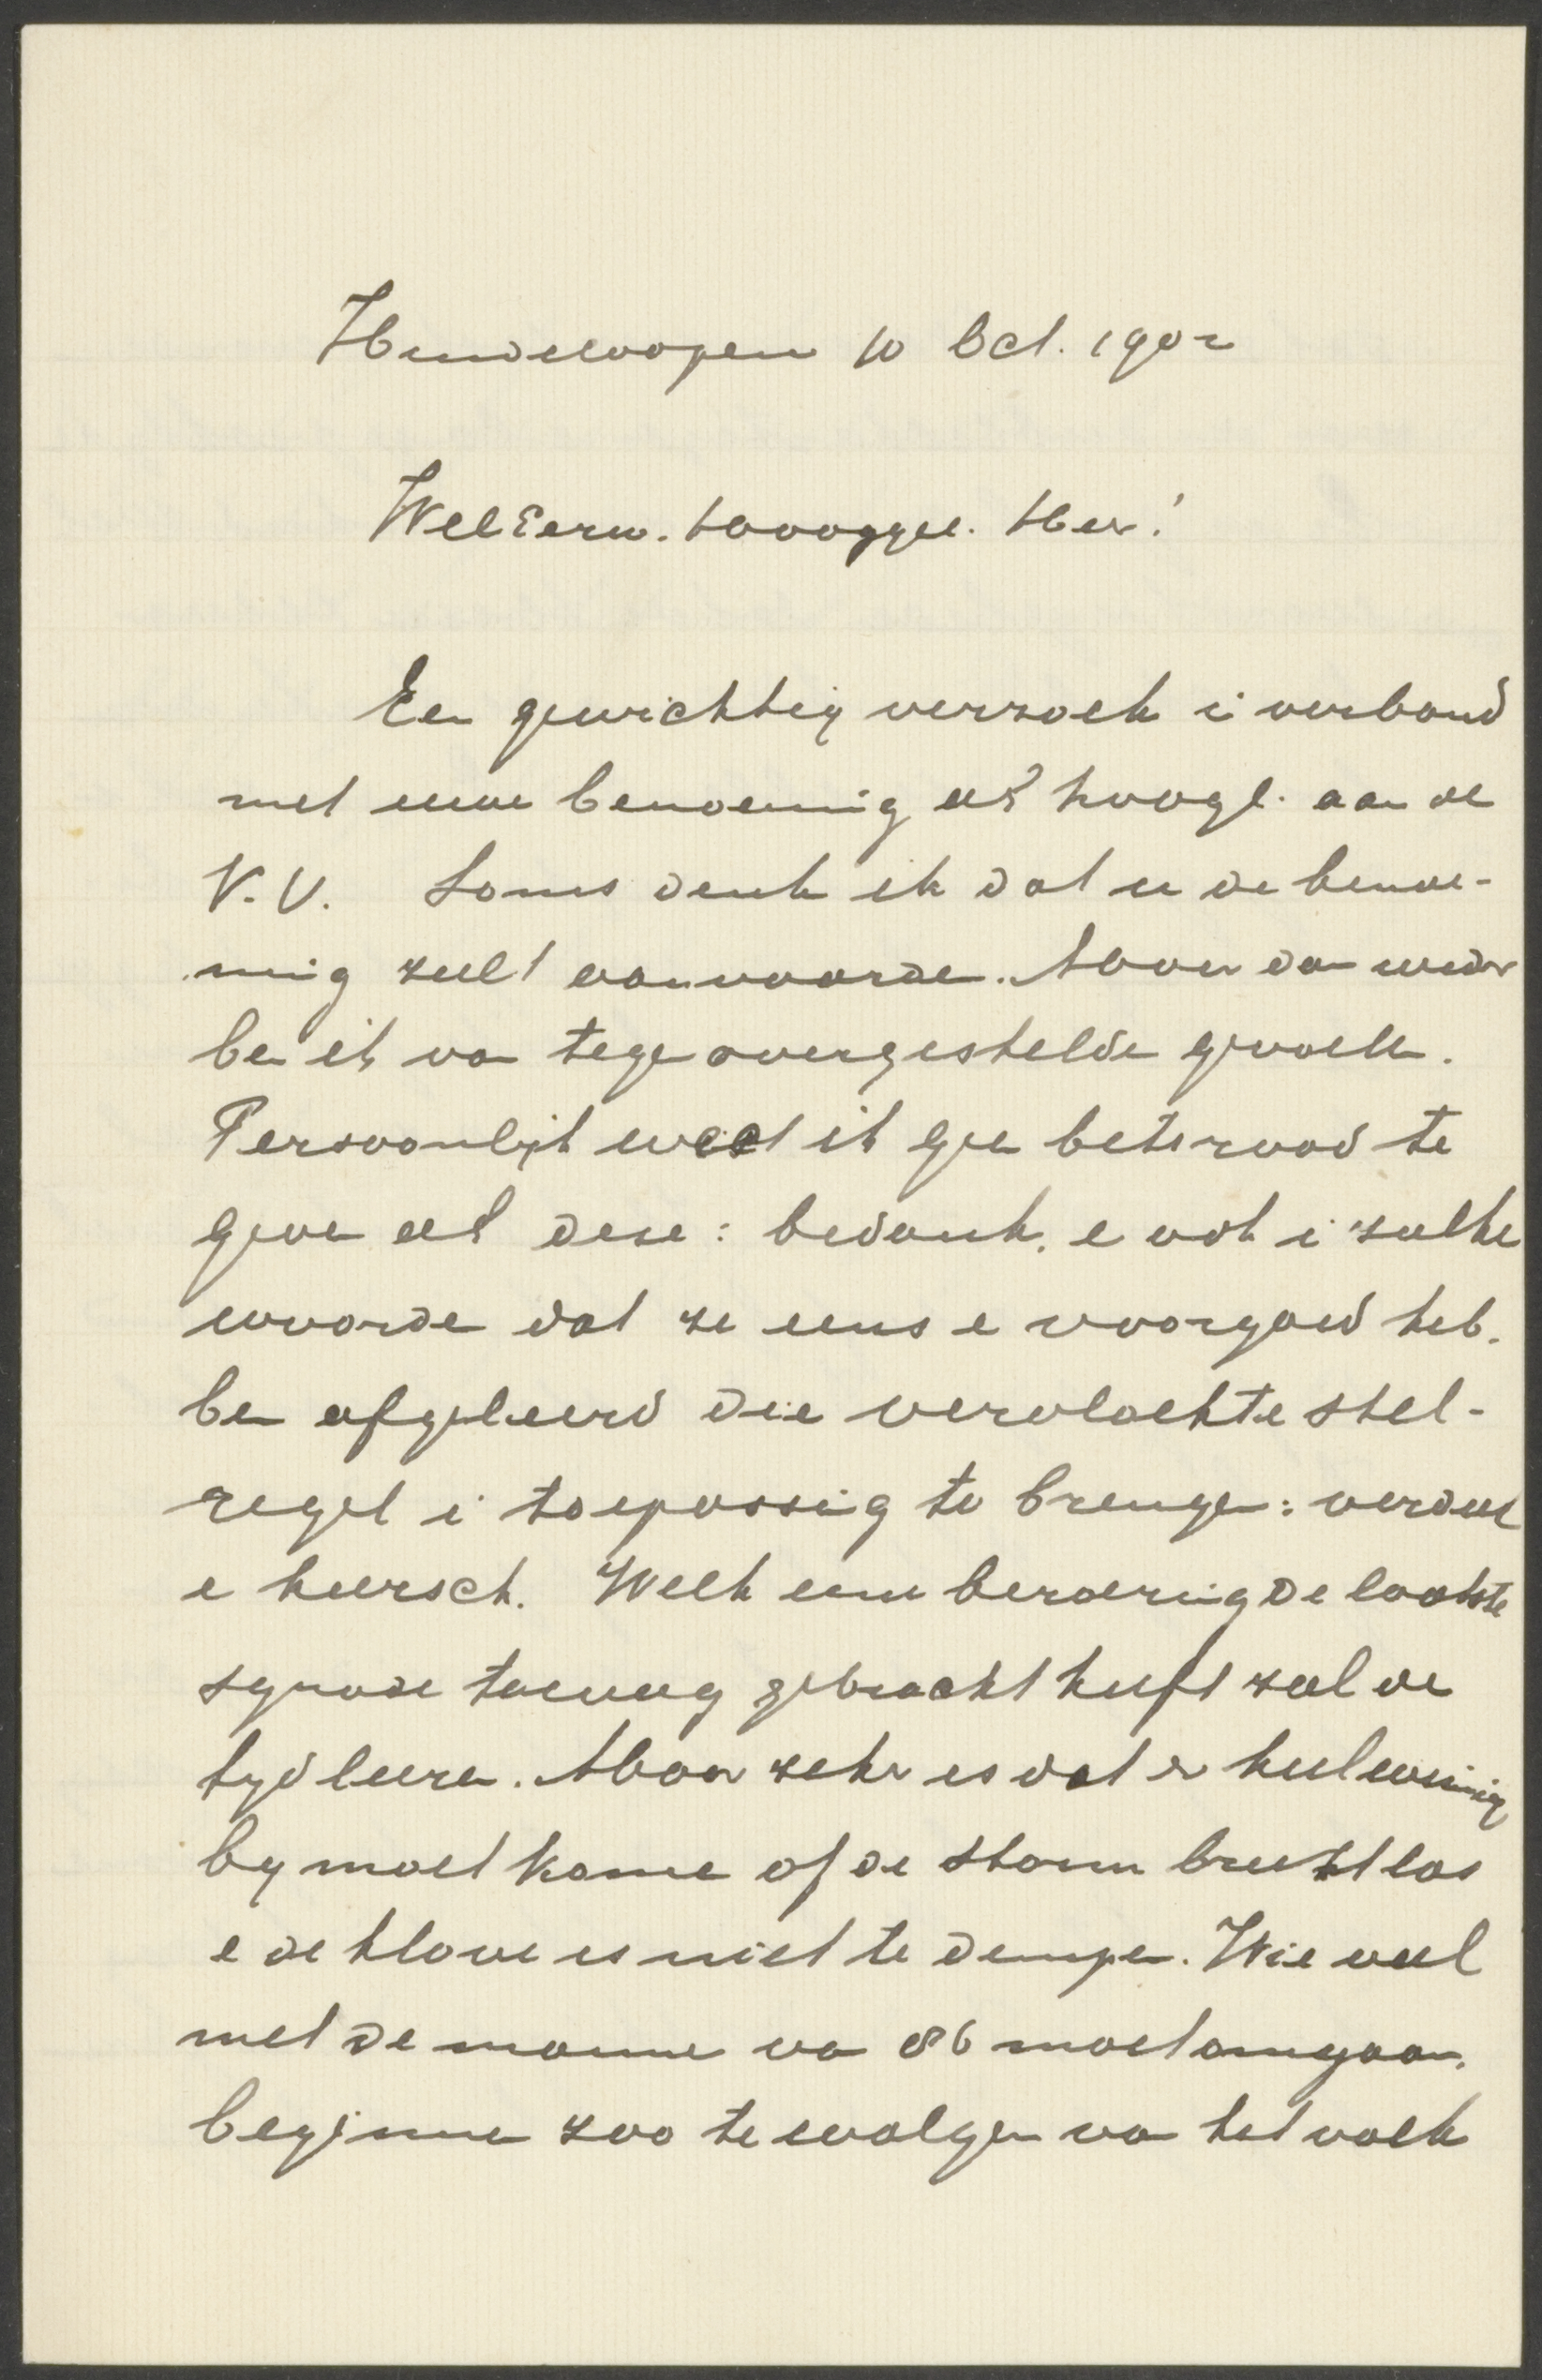 Hindeloopen 10 Oct. 1902
WelEerw. Hooggel. Heer!
Een gewichtig verzoek i verband
met uwe benoemig als hoogl. aan de
V.U. Soms denk ik dat u de benoe-
mig zult aanvaarde. Maar dan weder
ben ik van tegenovergestelde gevoele.
Persoonlijk weet ik gee beter raad te
geve als deze: bedank, e ook i zulke
woorde dat ze eens e voorgoed heb-
ben afgeleerd die vervloekte stel-
regel i toepassig te brenge: verdeel
e heersch. Welk eene beroerig de laatste
synode teweeg gebracht heeft zal de
tyd leere. Maar zeker is dat er heel weinig
by moet kome of de storm breekt los
e de klove is niet te dempe. Wie veel
met de manne va 86 moet omgaan,
beginne zoo te walge va het volk